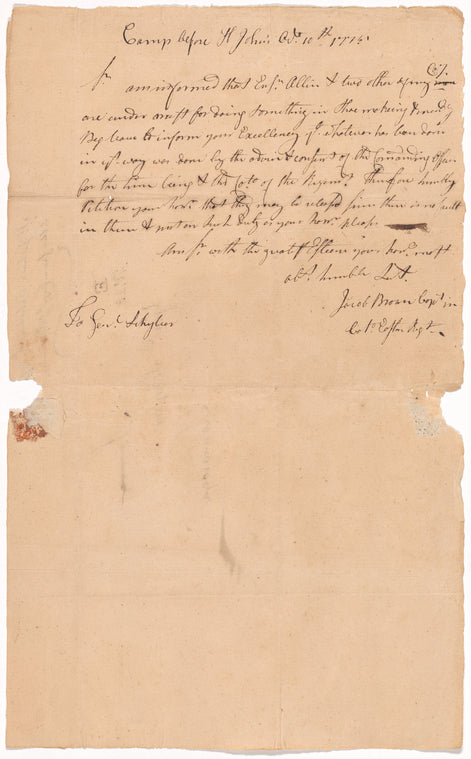 Camp before St Johns Oct 10th 1775
Sr
am informed that Ensn Allin & two other of my Coy.
are under arrest for doing something in Shoe making & mending
Beg leave to inform your Excellency yt whatever has been done
in yt way was done by the advice & consent of the Comanding officer
for the time being & the Capts of the Regimt Therefore humbly
Petition your Honr that they may be releasd since there is no fault
in them & put on such Duty as your honr please
Am Sr with the greatest Esteem your honrs most
obt humble Sert
Jacob Brown Capt in
Colo Easton Regt
To Genl Schyler